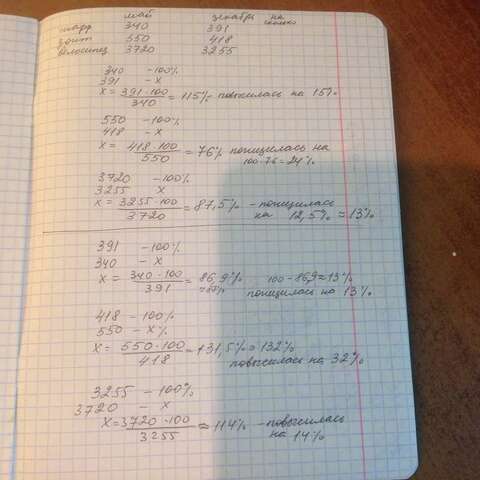 май декабрь на сколько
шарф 340 391
зонт 550 418
велосипед 3720 3255
340 - 100%
391 - x
x = 391·100 / 340 = 115% повысилась на 15%
550 - 100%
418 - x
x = 418·100 / 550 = 76% понизилась на
100-76=24%
3720 - 100%
3255 x
x = 3255·100 / 3720 = 87,5% - понизилась
на 12,5% ≈ 13%
391 - 100%
340 - x
x = 340·100 / 391 = 86,9% 100 - 86,9 ≈ 13%
≈87% понизилась на 13%
418 - 100%
550 - x%
x = 550·100 / 418 = 131,5% ≈ 132%
повысилась на 32%
3255 - 100%
3720 - x
x = 3720·100 / 3255 ≈ 114% - повысилась
на 14%